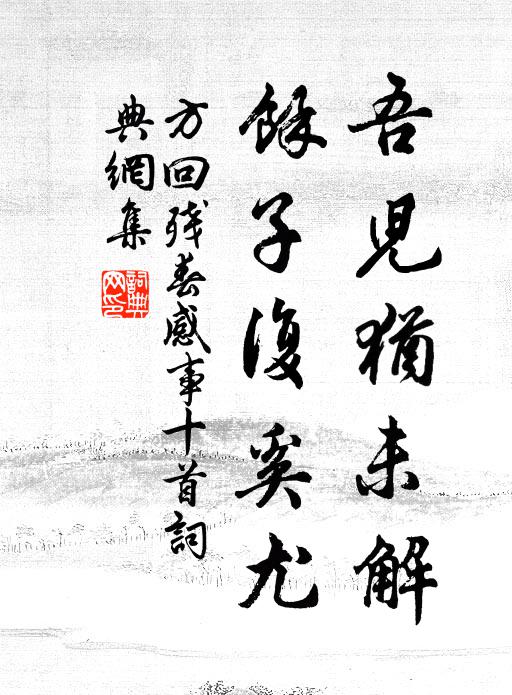 吾兒猶未解
餘子復奚尤
方回殘春感事十首詞
典網集
詞典
网印